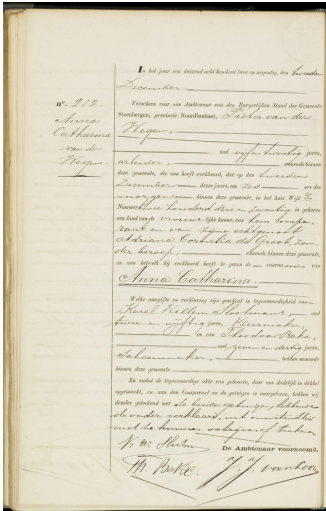 In het jaar een duizend acht honderd twee en negentig, den tweeden
December
No. 212
Anna
Catharina
van der
Wegen
Verscheen voor ons Ambtenaar van den Burgerlijken Stand der Gemeente
Steenbergen, provincie Noordbrabant, Pieter van der
Wegen,
oud vijf en twintig jaren,
arbeider, wonende binnen
deze gemeente, die ons heeft verklaard, dat op den tweeden
December dezes jaars, om zes ure des
morgens binnen deze gemeente, in het huis Wijk E
Nummer twee honderd drie en twintig is geboren
een kind van de vrouwelijke kunne, van hem compa-
rant en van zijne echtgenoot
Adriana Cornelia de Groot, zon-
der beroep, wonende binnen deze gemeente,
en aan hetwelk hij verklaard heeft te geven de voornamen van
Anna Catharina.
Welke aangifte en verklaring zijn geschied in tegenwoordigheid van
Karel Willem Slootmans oud
twee en vijftig jaren,
en van Theodoor Bakx,
oud zeven en dertig jaren,
schoenmaker, beiden wonende
binnen deze gemeente
En nadat de tegenwoordige akte was gehoord, door ons dadelijk in dubbel
opgemaakt, en aan den Comparant en de getuigen is voorgelezen, hebben wij
dezelve geteekend met de beide getuigen, hebbende
de vader verklaard, uit onkunde
niet te kunnen schrijven of teekenen
De Ambtenaar voornoemd,
Th. Bakx
J. J. van Loon